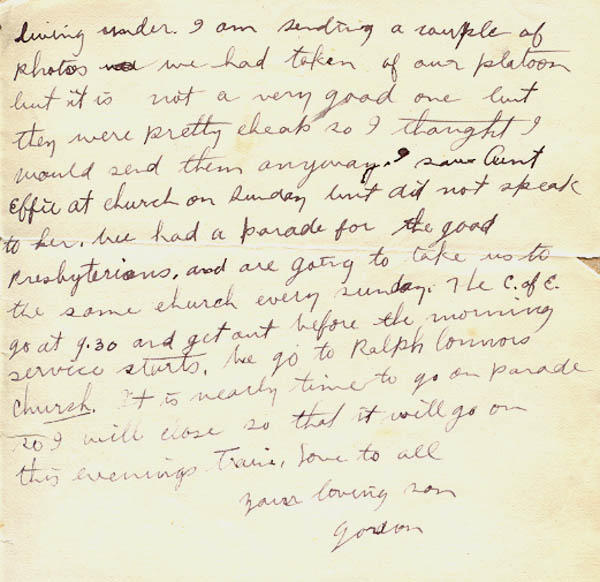 living under. I am sending a couple of
photos we had taken of our platoon
but it is not a very good one but
they were pretty cheap so I thought I
would send them anyway. I saw Aunt
Effie at church on Sunday but did not speak
to her. We had a parade for the good
Presbyterians, and are going to take us to
the same church every sunday. The C. of E.
go at 9.30 and get out before the morning
service starts. We go to Ralph Connors
Church. It is nearly time to go on parade
so I will close so that it will go on
this evenings train. Love to all
your loving son
Gordon